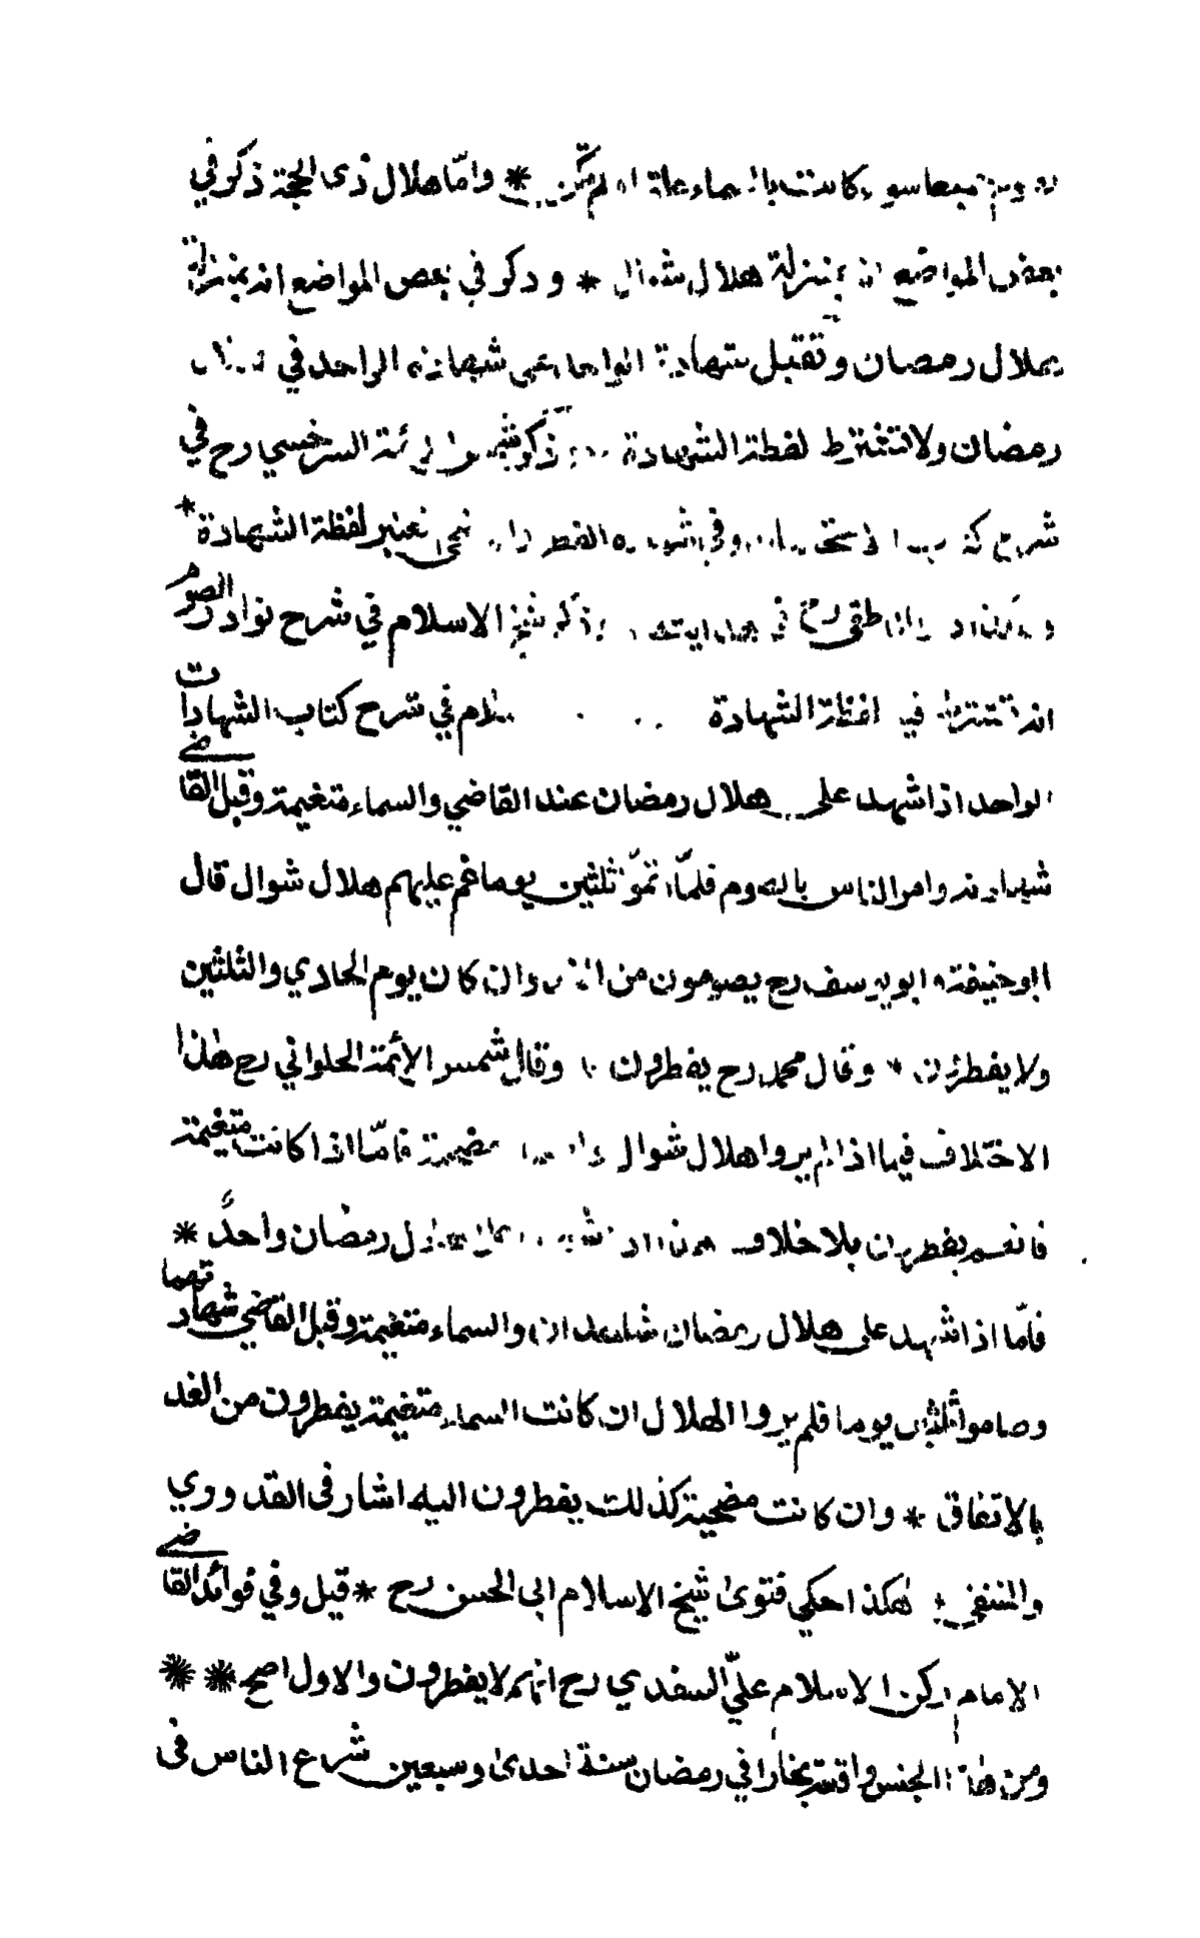 سواء كانت بالسماء علة او لم تكن * وامّا هلال ذى الحجة ذكر في
بعض المواضع انه بمنزلة هلال شوال * وذكر في بعض المواضع انه بمنزلة
هلال رمضان وتقبل شهادة الواحد على شهادة الواحد في هلال
رمضان ولا تشترط لفظة الشهادة ذكر شمس الائمة السرخسي رح في
شرح وفي شهادة الفطر تعتبر لفظة الشهادة *
رح في وذكر شيخ الاسلام في شرح نوادر الصوم
انه تشترط فيه لفظة الشهادة في شرح كتاب الشهادات
الواحد اذا شهد على هلال رمضان عند القاضي والسماء متغيمة وقبل القاضي
شهادته وامر الناس بالصوم فلمّا اتمّوا ثلثين يوما غم عليهم هلال شوال قال
ابو حنيفة وابو يوسف رح يصومون من الغد وان كان يوم الحادي والثلثين
ولا يفطرون * وقال محمد رح يفطرون * وقال شمس الائمة الحلواني رح هذا
الاختلاف فيما اذا لم يروا هلال شوال والسماء مضحية فامّا اذا كانت متغيمة
فانهم يفطرون بلا خلاف هذا اذا شهد على هلال رمضان واحدٌ *
فامّا اذا شهد على هلال رمضان شاهدان والسماء متغيمة وقبل القاضي شهادتهما
وصاموا ثلثين يوما فلم يروا الهلال ان كانت السماء متغيمة يفطرون من الغد
بالاتفاق * وان كانت مضحية كذلك يفطرون اليه اشار فى القدوري
والمنتقى * هكذا حكي فتوى شيخ الاسلام ابى الحسن رح * قيل وفي فوائد القاضي
الامام ركن الاسلام عليّ السغدي رح انهم لا يفطرون والاول اصح * *
ومن هذا الجنس واقعة بخارا في رمضان سنة احدى وسبعين شرع الناس فى